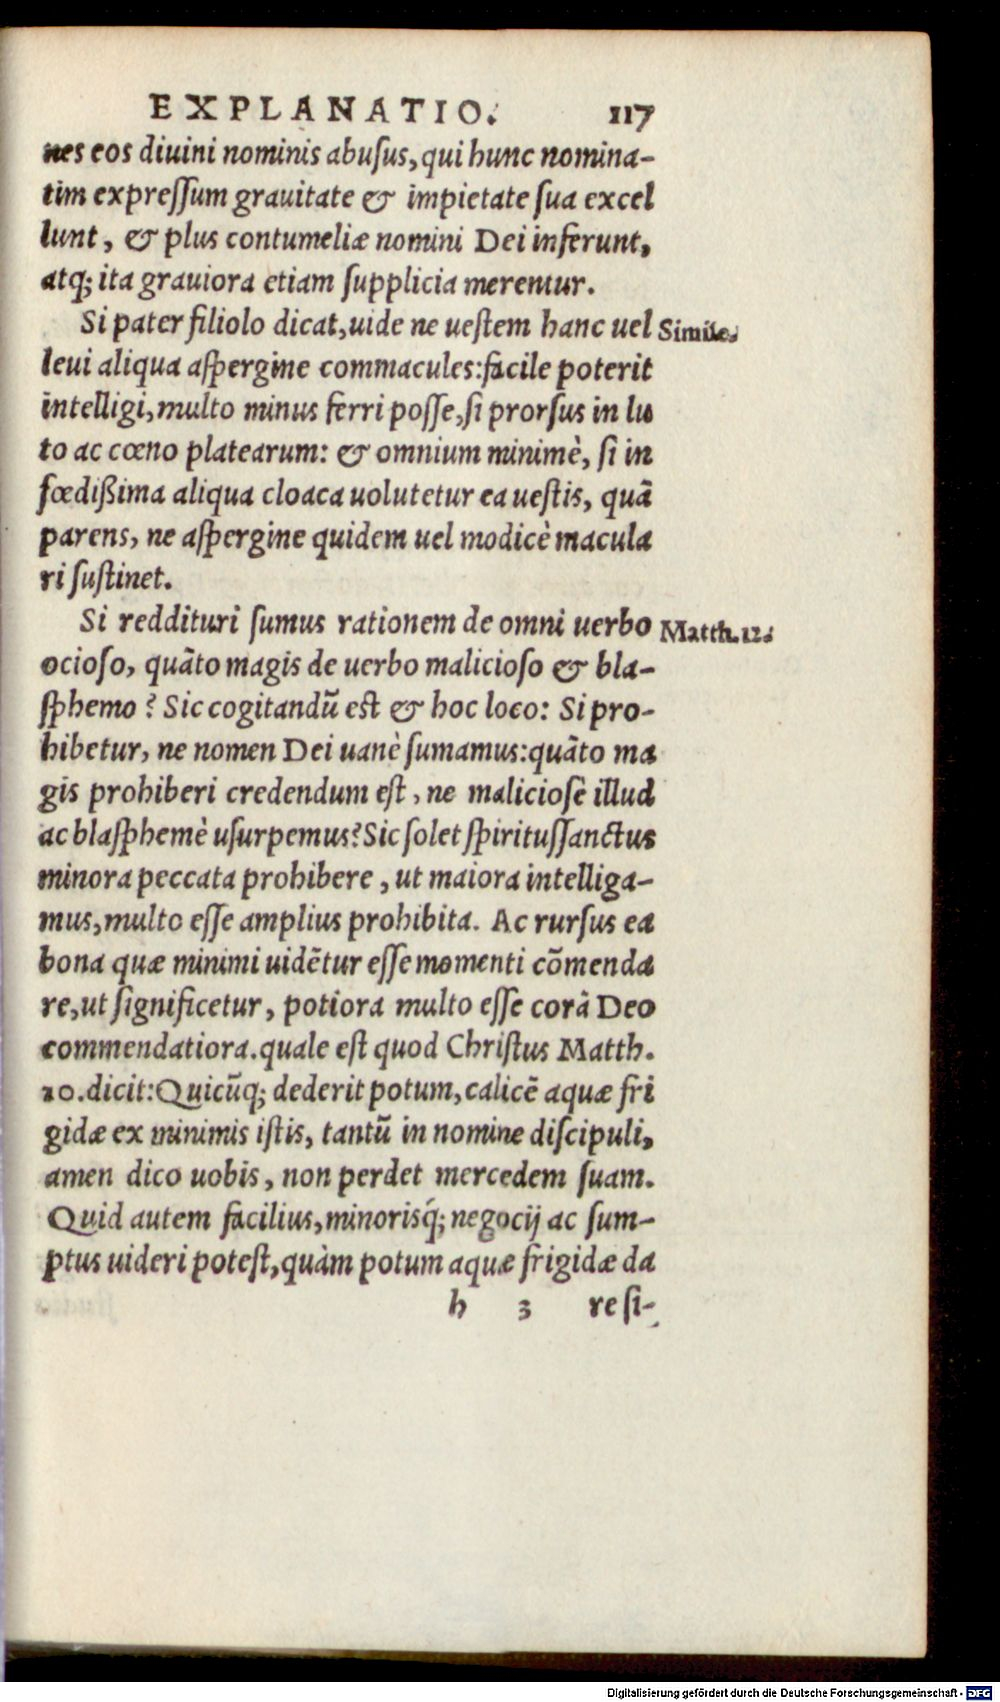 EXPLANATIO. 117
nes eos diuini nominis abuſus, qui hunc nomina-
tim expreſſum grauitate & impietate ſua excel
lunt, & plus contumeliæ nomini Dei inferunt,
atq; ita grauiora etiam ſupplicia merentur.
Si pater filiolo dicat, uide ne ueſtem hanc uel Simile.
leui aliqua aſpergine commacules: facile poterit
intelligi, multo minus ferri poſſe, ſi prorſus in lu
to ac cœno platearum: & omnium minimè, ſi in
fœdiſſima aliqua cloaca uolutetur ea ueſtis, quã
parens, ne aſpergine quidem uel modicè macula
ri ſuſtinet.
Si reddituri ſumus rationem de omni uerbo Matth. 12.
ocioſo, quãto magis de uerbo malicioſo & bla-
ſphemo? Sic cogitandũ eſt & hoc loco: Si pro-
hibetur, ne nomen Dei uanè ſumamus: quãto ma
gis prohiberi credendum eſt, ne malicioſè illud
ac blaſphemè uſurpemus? Sic ſolet ſpirituſſanctus
minora peccata prohibere, ut maiora intelliga-
mus, multo eſſe amplius prohibita. Ac rurſus ea
bona quæ minimi uidẽtur eſſe momenti cõmenda
re, ut ſignificetur, potiora multo eſſe corã Deo
commendatiora. quale eſt quod Chriſtus Matth.
10. dicit: Quicũq; dederit potum, calicẽ aquæ fri
gidæ ex minimis iſtis, tantũ in nomine diſcipuli,
amen dico uobis, non perdet mercedem ſuam.
Quid autem facilius, minorisq́; negocij ac ſum-
ptus uideri poteſt, quàm potum aquæ frigidæ da
h 3 re ſi-
Digitalisierung gefördert durch die Deutsche Forschungsgemeinschaft - DFG